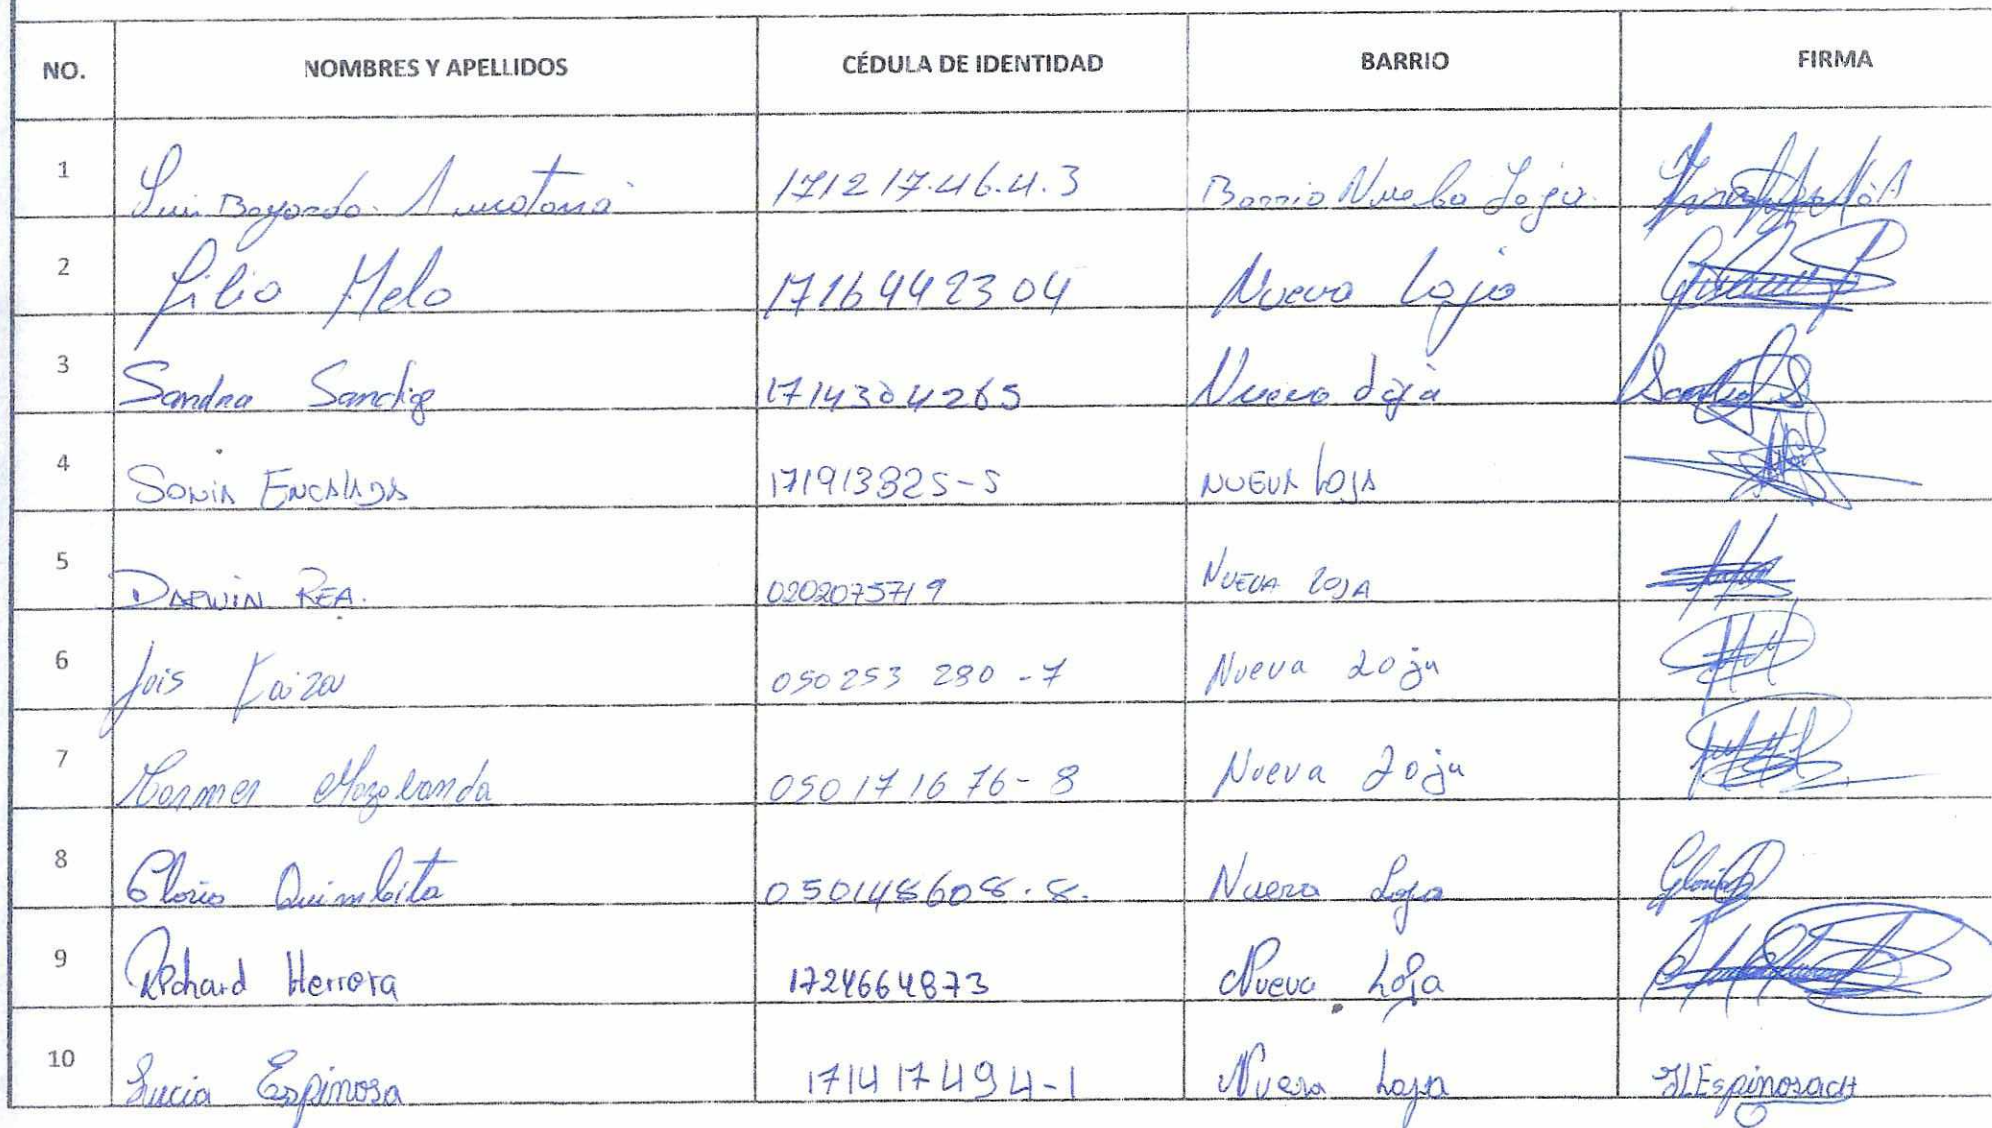 NO. NOMBRES Y APELLIDOS CÉDULA DE IDENTIDAD BARRIO FIRMA
1 Luis Bayardo 171217.46.4.3 Barrio Nueba Loja
2 Lilio Melo 1716442304 Nueva Loja
3 Sandra 1714304265 Nueva Loja
4 SONIA ENCALADA 171913825-5 NUEVA LOJA
5 DARWIN REA. 0202075719 NUEVA LOJA
6 050253 280-7 Nueva Loja
7 050171676-8 Nueva Loja
8 Gloria Quimbita 050148608.8. Nueva Loja Gloria
9 Richard Herrera 1724664873 Nueva Loja
10 Lucia Espinosa 171417494-1 Nueva Loja